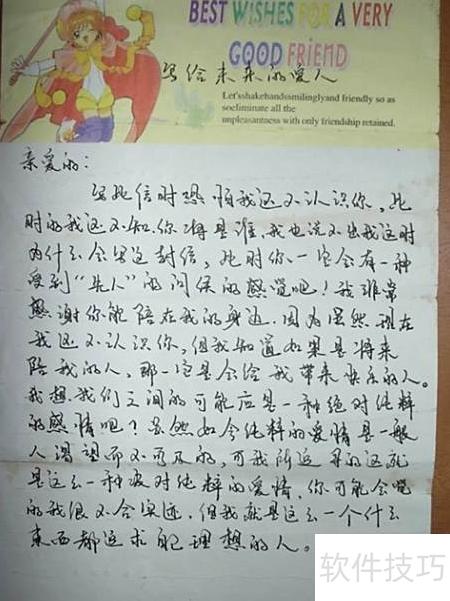 BEST WISHES FOR A VERY
GOOD FRIEND
写给未来的爱人
Let'sshakehandssmilinglyand friendly so as
soeliminate all the
unpleasantness with only friendship retained.
亲爱的：
写此信时恐怕我还不认识你，此
时的我还不知你将是谁，我也说不出我这时
为什么会写这封信，此时你一定会有一种
受到“先人”的问侯的感觉吧！我非常
感谢你能陪在我的身边，因为虽然现在
我还不认识你，但我知道如果是将来
陪我的人，那一定是会给我带来快乐的人。
我想我们之间的可能应是一种绝对纯粹
的感情吧？虽然如今纯粹的爱情是一般
人渴望而不可及的，可我所追寻的这就
是这么一种液对纯粹的爱情，你可能会觉
的我很不合实迹，但我就是这么一个什么
東西都追求配理想的人。
软件技巧